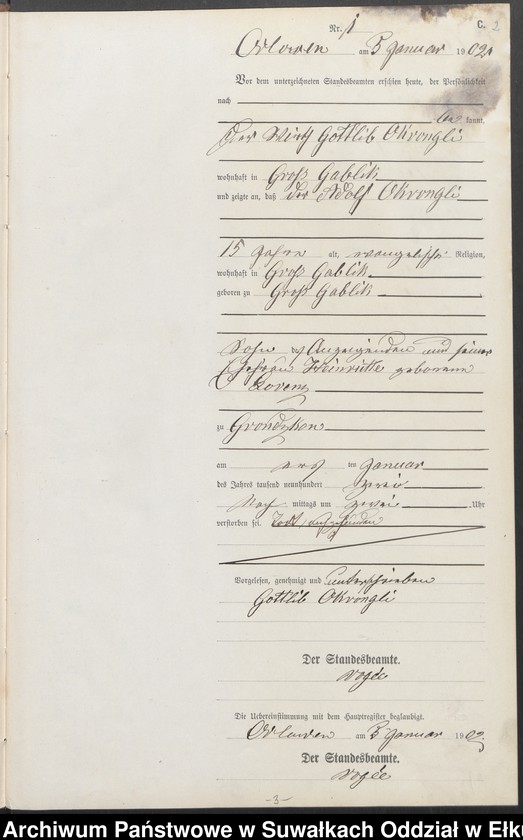 Nr. 1
C. 2
Orlowen am 3 Januar 1902
Vor dem unterzeichneten Standesbeamten erschien heute, der Persönlichkeit
nach
be kannt,
der Wirth Gottlib Okrongli
wohnhaft in Groß Gablik
und zeigte an, daß der Adolf Okrongli
15 Jahre alt, evangelischer Religion,
wohnhaft in Groß Gablik
geboren zu Groß Gablik
Sohn des Anzeigenden und seiner
Ehefrau Heinriette geborene
Lorenz
zu Grondzken
am erst ten Januar
des Jahres tausend neunhundert zwei
Nach mittags um zwei Uhr
verstorben sei. Todt aufgefunden
Vorgelesen, genehmigt und unterschrieben
Gottlib Okrongli
Der Standesbeamte.
Die Uebereinstimmung mit dem Hauptregister beglaubigt.
Orlowen am 3 Januar 1902
Der Standesbeamte.
-3-
Archiwum Państwowe w Suwałkach Oddział w Ełk